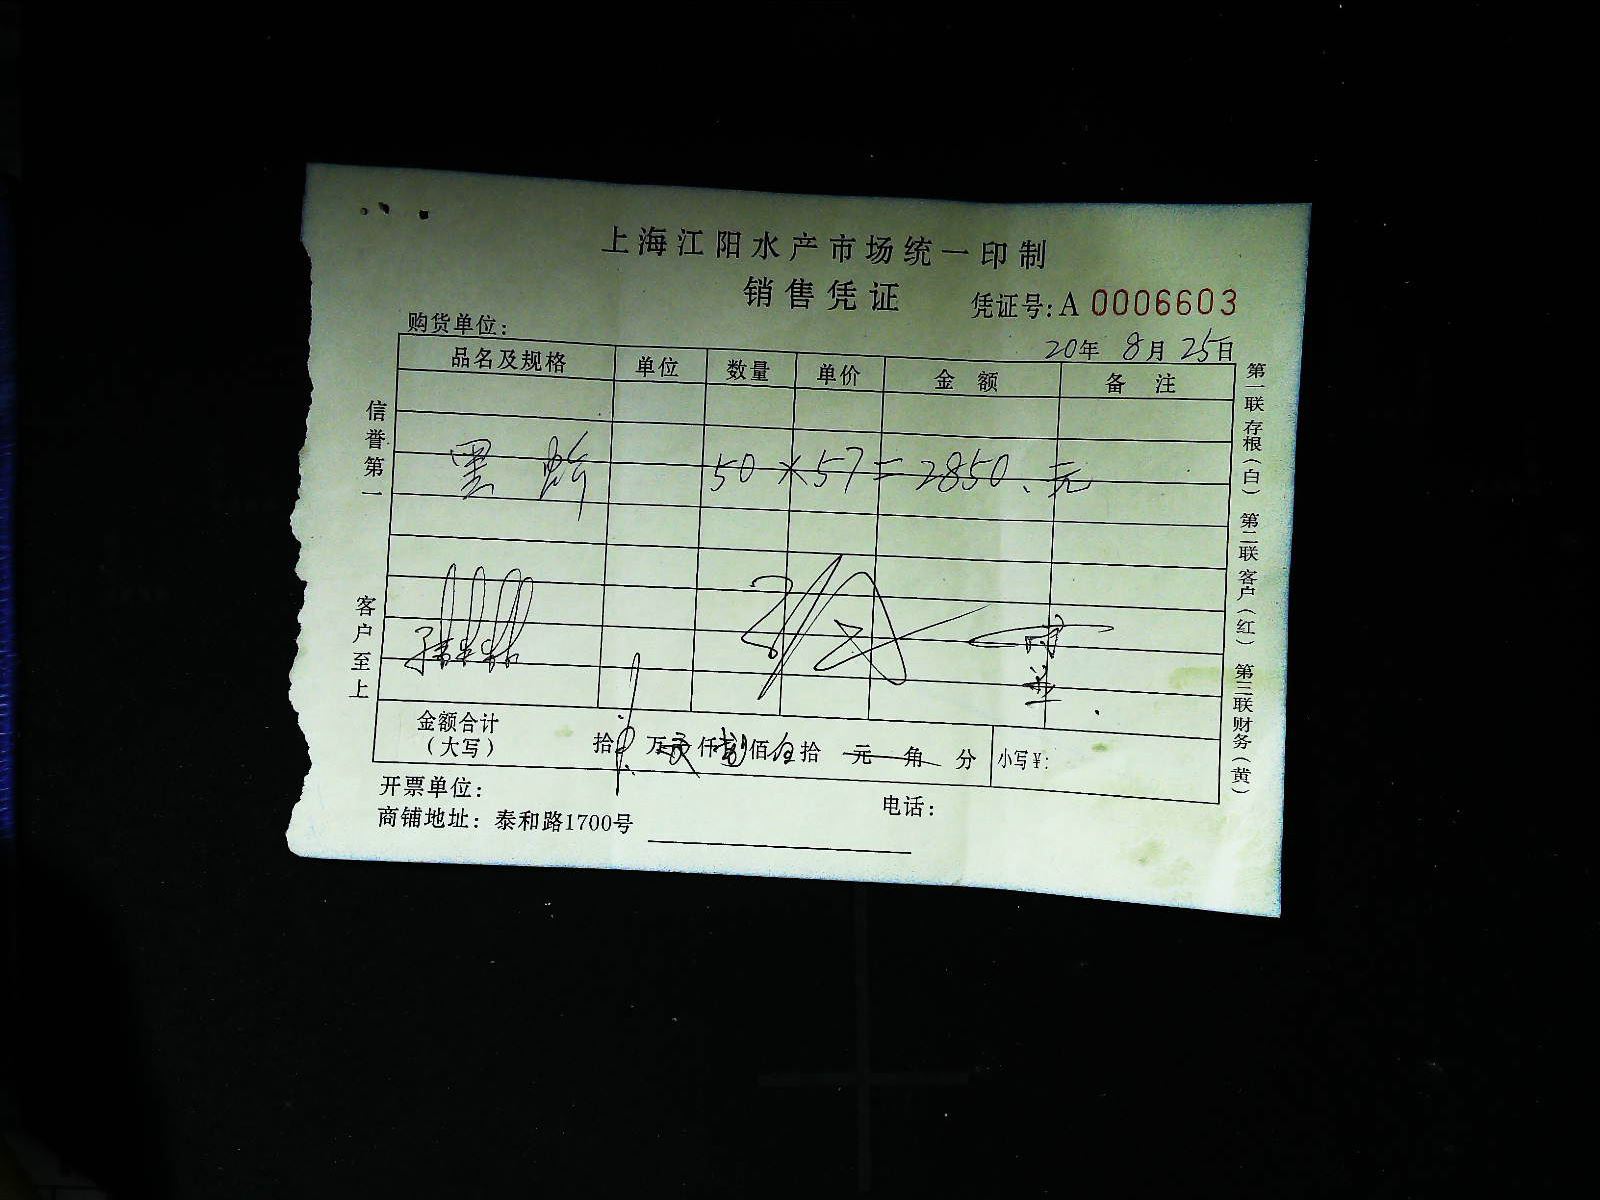 上海江阳水产市场统一印制
销售凭证 凭证号:A 0006603
购货单位: 20年 8月 25日
品名及规格 单位 数量 单价 金额 备注
黑 50×57=2850.元
金额合计(大写) 拾 万贰仟捌佰伍拾 元 角 分 小写¥:
开票单位: 电话:
商铺地址: 泰和路1700号
信誉第一
客户至上
第一联存根(白) 第二联客户(红) 第三联财务(黄)